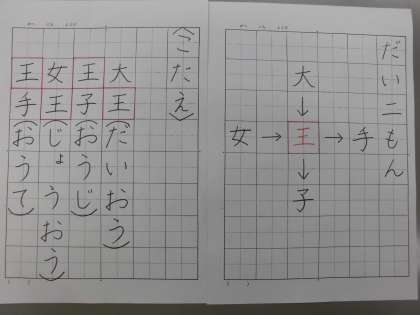 だい二もん
大
↓
女→王→手
↓
子
(こたえ)
大王(だいおう)
王子(おうじ)
女王(じょうおう)
王手(おうて)